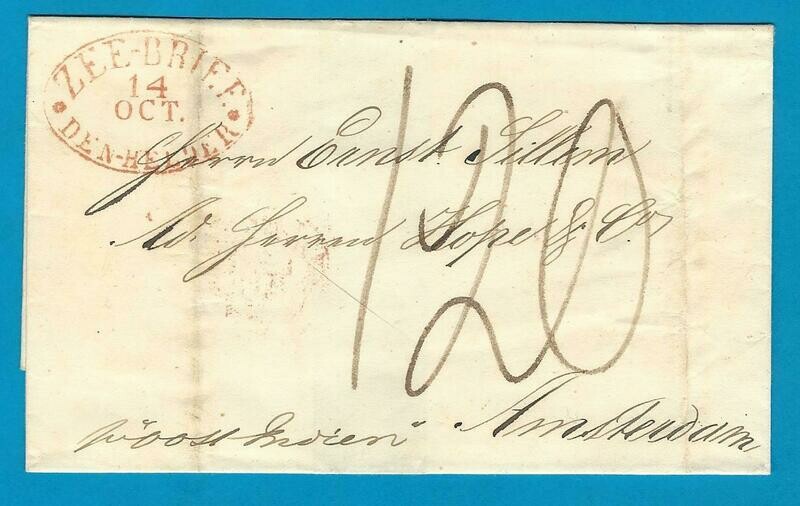 ZEE-BRIEF
14
OCT.
DEN-HELDER
Herrn Ernst Sillem
Ad. Herren Hope & Co
120
Amsterdam
p "oost Indien"